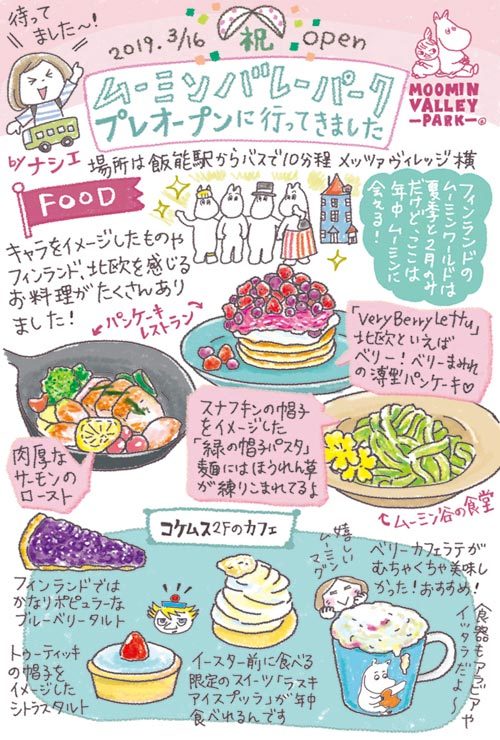 待って
ました〜!
2019. 3/16 祝 open
ムーミンバレーパーク
プレオープンに行ってきました
MOOMIN
VALLEY
-PARK-®
by ナシエ 場所は飯能駅からバスで10分程 メッツァ ヴィレッジ横
FOOD
キャラをイメージしたものや
フィンランド、北欧を感じる
お料理がたくさんあり
ました!
フィンランドの
ムーミンワールドは
夏季と2月のみ
だけど、ここは
年中 ムーミンに
会える!
パンケーキ
レストラン
「Very Berry Lettu」
北欧といえば
ベリー!ベリーまみれ
の薄型パンケーキ♡
肉厚な
サーモンの
ロースト
スナフキンの帽子
をイメージした
「緑の帽子パスタ」
麺にはほうれん草
が練りこまれてるよ
ムーミン谷の食堂
コケムス2Fのカフェ
フィンランドでは
かなりポピュラーな
ブルーベリータルト
トゥーティッキ
の帽子を
イメージした
シトラスタルト
イースター前に食べる
限定のスイーツ「ラスキ
アイスプッラ」が年中
食べれるんです
嬉しい
ムーミン
マグ
ベリーカフェラテが
むちゃくちゃ美味し
かった!おすすめ!
食器もアラビアや
イッタラだよ〜